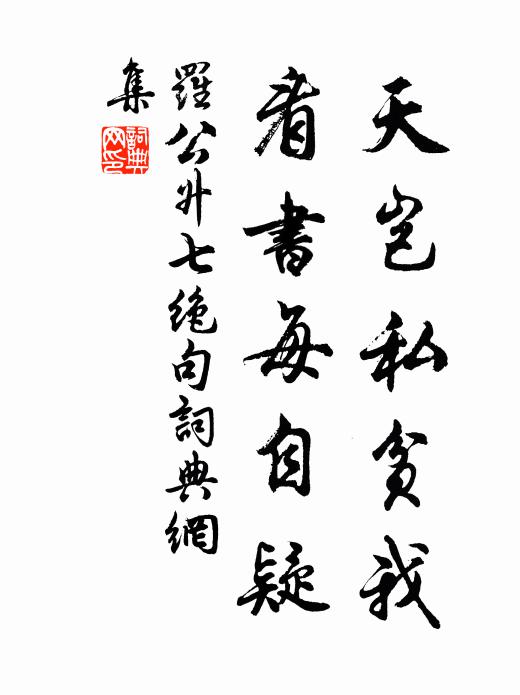 天豈私貧我
看書每自疑
羅公升七絕句詞典網
集
詞典網印